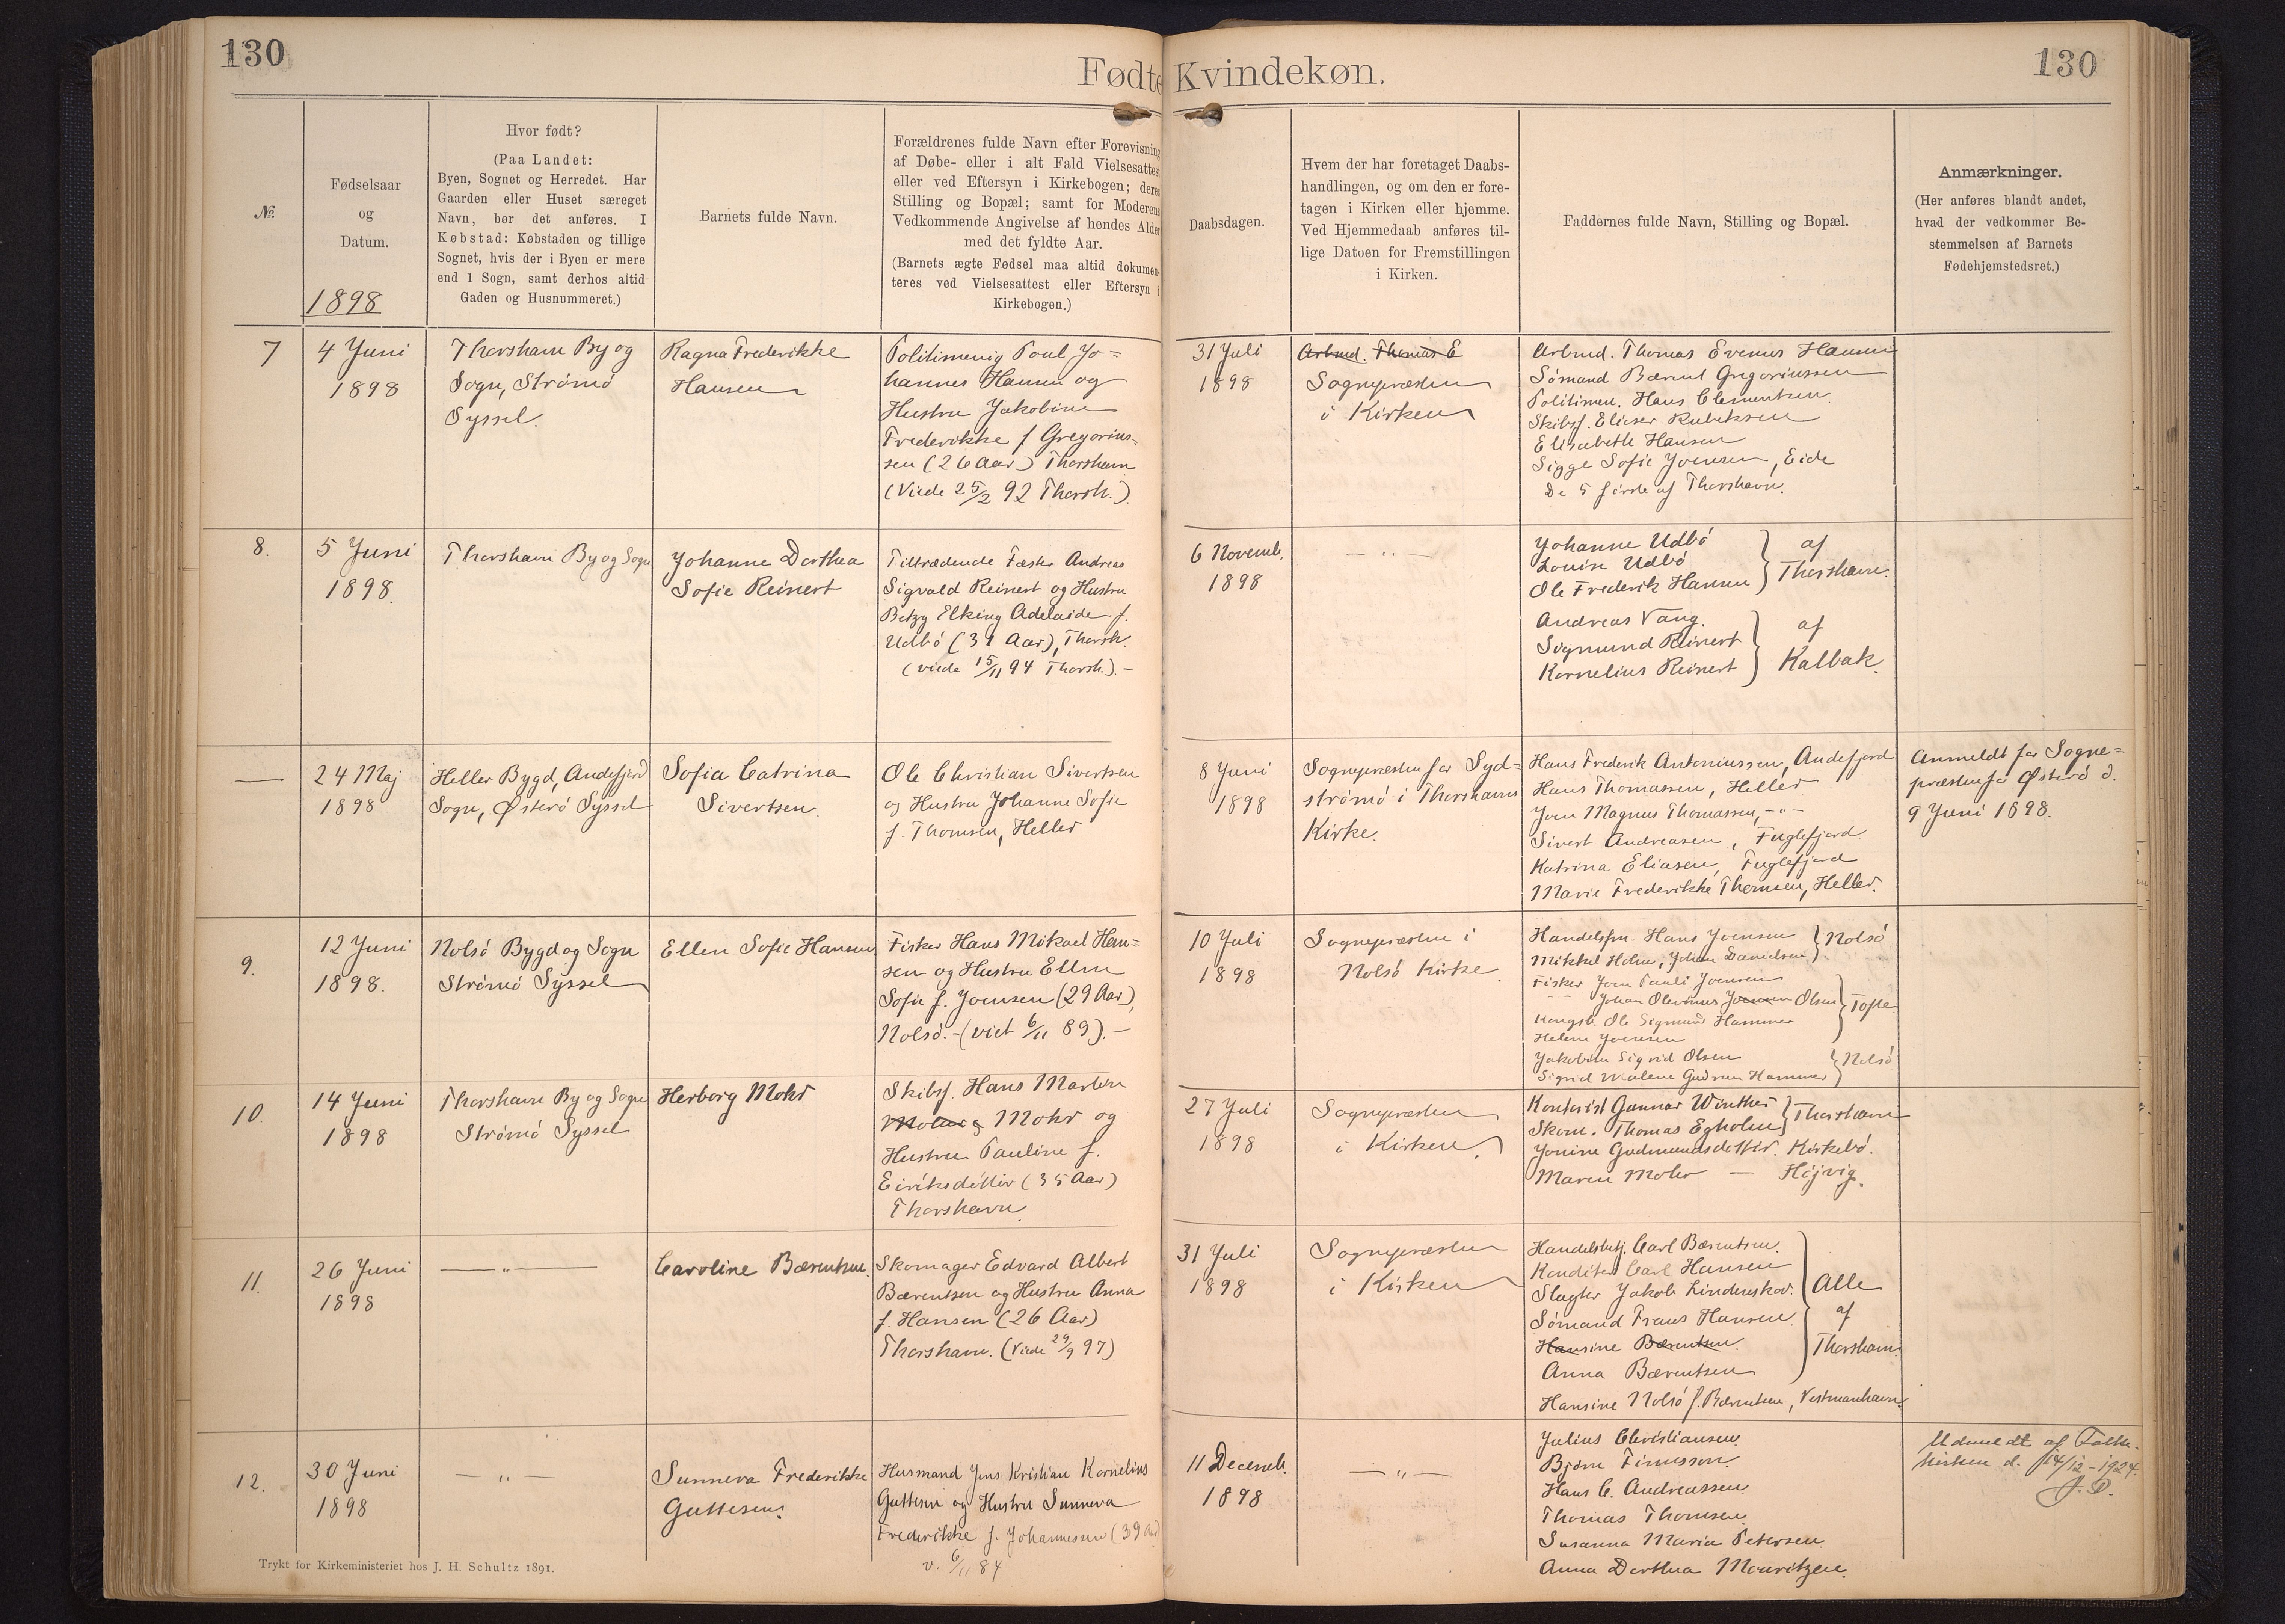 130
Fødte Kvindekøn.
130
№
Fødselsaar
og
Datum.
1898
Hvor født?
(Paa Landet:
Byen, Sognet og Herredet. Har
Gaarden eller Huset særeget
Navn, bør det anføres. I
Købstad: Købstaden og tillige
Sognet, hvis der i Byen er mere
end 1 Sogn, samt derhos altid
Gaden og Husnummeret.)
Barnets fulde Navn.
Forældrenes fulde Navn efter Forevisning
af Døbe- eller i alt Fald Vielsesattest
eller ved Eftersyn i Kirkebogen; deres
Stilling og Bopæl; samt for Moderens
Vedkommende Angivelse af hendes Alder
med det fyldte Aar.
(Barnets ægte Fødsel maa altid dokumen-
teres ved Vielsesattest eller Eftersyn i
Kirkebogen.)
Daabsdagen.
Hvem der har foretaget Daabs-
handlingen, og om den er fore-
tagen i Kirken eller hjemme.
Ved Hjemmedaab anføres til-
lige Datoen for Fremstillingen
i Kirken.
Faddernes fulde Navn, Stilling og Bopæl.
Anmærkninger.
(Her anføres blandt andet,
hvad der vedkommer Be-
stemmelsen af Barnets
Fødehjemstedsret.)
7
4 Juni
1898
Thorshavn By og
Sogn, Strømø
Syssel.
Ragna Frederikke
Hansen
Politimenig Poul Jo=
hannes Hansen og
Hustru Jakobine
Frederikke f Gregorius=
sen (26 Aar) Thorshavn
(Viede 25/2 92 Thorsh.).
31 Juli
1898
Arbmd. Thomas E
Sognepræsten
i Kirken
Arbmd. Thomas Evenus Hansen
Sömand Bærent Gregoriussen
Politimen. Hans Clementsen.
Skibsf. Elieser Rubeksen
Elisabeth Hansen
Sigge Sofie Joensen, Eide
De 5 første af Thorshavn.
8.
5 Juni
1898.
Thorshavn By og Sogn
Johanne Dorthea
Sofie Reinert
Tiltrædende Fæster Andreas
Sigvald Reinert og Hustru
Betzy Elking Adelaide f.
Udbö (31 Aar), Thorsh.
(viede 15/11 94 Thorsh.). -
6 Novemb.
1898
— „ —
Johanne Udbö
Louise Udbö
Ole Frederik Hansen
af
Thorshavn.
Andreas Vang.
Sigmund Reinert
Kornelius Reinert
af
Kalbak.
—
24 Maj
1898
Heller Bygd, Andefjord
Sogn, Østerø Syssel
Sofia Catrina
Sivertsen.
Ole Christian Sivertsen
og Hustru Johanne Sofie
f. Thomsen, Heller
8 Juni
1898
Sognepræsten for Syd=
strømø i Thorshavns
Kirke.
Hans Frederik Antoniussen, Andefjord
Hans Thomassen, Heller
Joen Magnus Thomassen, -„-
Sivert Andreasen, Fuglefjord.
Katrina Eliasen, Fuglefjord
Marie Frederikke Thomsen, Heller.
Anmeldt for Sogne=
præsten for Østerø d.
9 Juni 1898.
9.
12 Juni
1898.
Nolsö Bygd og Sogn
Strömö Syssel
Ellen Sofie Hansen
Fisker Hans Mikael Han=
sen og Hustru Ellen
Sofie f. Joensen (29 Aar),
Nolsö.- (viet 6/11 89). -
10 Juli
1898
Sognepræsten i
Nolsö Kirke
Handelsfm. Hans Joensen
Mikkel Holm, Johan Danielsen
Nolsö
Fisker Joen Pauli Joensen
-- Johan Olevinus Joensen Olsen
Kongsb. Ole Sigmund Hammer
Helene Joensen
Tofte
Jakobine Sigrid Olsen
Sigrid Malene Gudrun Hammer
Nolsö
10.
14 Juni
1898
Thorshavn By og Sogn
Strömö Syssel
Herborg Mohr
Skibsf. Hans Marten
Mohr og
Hustru Pauline f.
Eiriksdóttir (35 Aar)
Thorshavn
27 Juli
1898
Sognepræsten
i Kirken.
Kontorist Gunnar Winther
Skom. Thomas Egholm
Thorshavn
Jonine Gudmundsdottir. Kirkebö.
Maren Mohr — Højvig.
11.
26 Juni
1898
— „ —
Caroline Bærentsen.
Skomager Edvard Albert
Bærentsen og Hustru Anna
f. Hansen (26 Aar)
Thorshavn. (Viede 29/9 97)
31 Juli
1898
Sognepræsten
i Kirken
Handelsbetj. Carl Bærentsen.
Konditor Carl Hansen
Slagter Jakob Lindenskov.
Sömand Frans Hansen.
Hansine Bærentsen.
Anna Bærentsen
Alle
af
Thorshavn.
Hansine Nolsö f. Bærentsen, Vestmanhavn.
12.
30 Juni
1898
— „ —
Sunneva Frederikke
Guttesen.
Husmand Jens Kristian Kornelius
Guttesen og Hustru Sunneva
Frederikke f. Johannessen (39 Aar)
v. 6/11 84
11 Decemb.
1898
— „ —
Julius Christiansen.
Björn Finnsson.
Hans C. Andreassen
Thomas Thomsen.
Susanna Maria Petersen.
Anna Dorthea Mouritzen.
Udmeldt af Folke-
kirken d. 14/12 - 1924.
Trykt for Kirkeministeriet hos J. H. Schultz 1891.